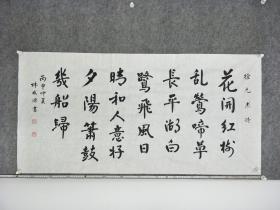 徐元杰诗
花開紅樹
乱鶯啼草
長平湖白
鷺飛風日
晴和人意好
夕陽簫鼓
幾船歸
丙申仲夏